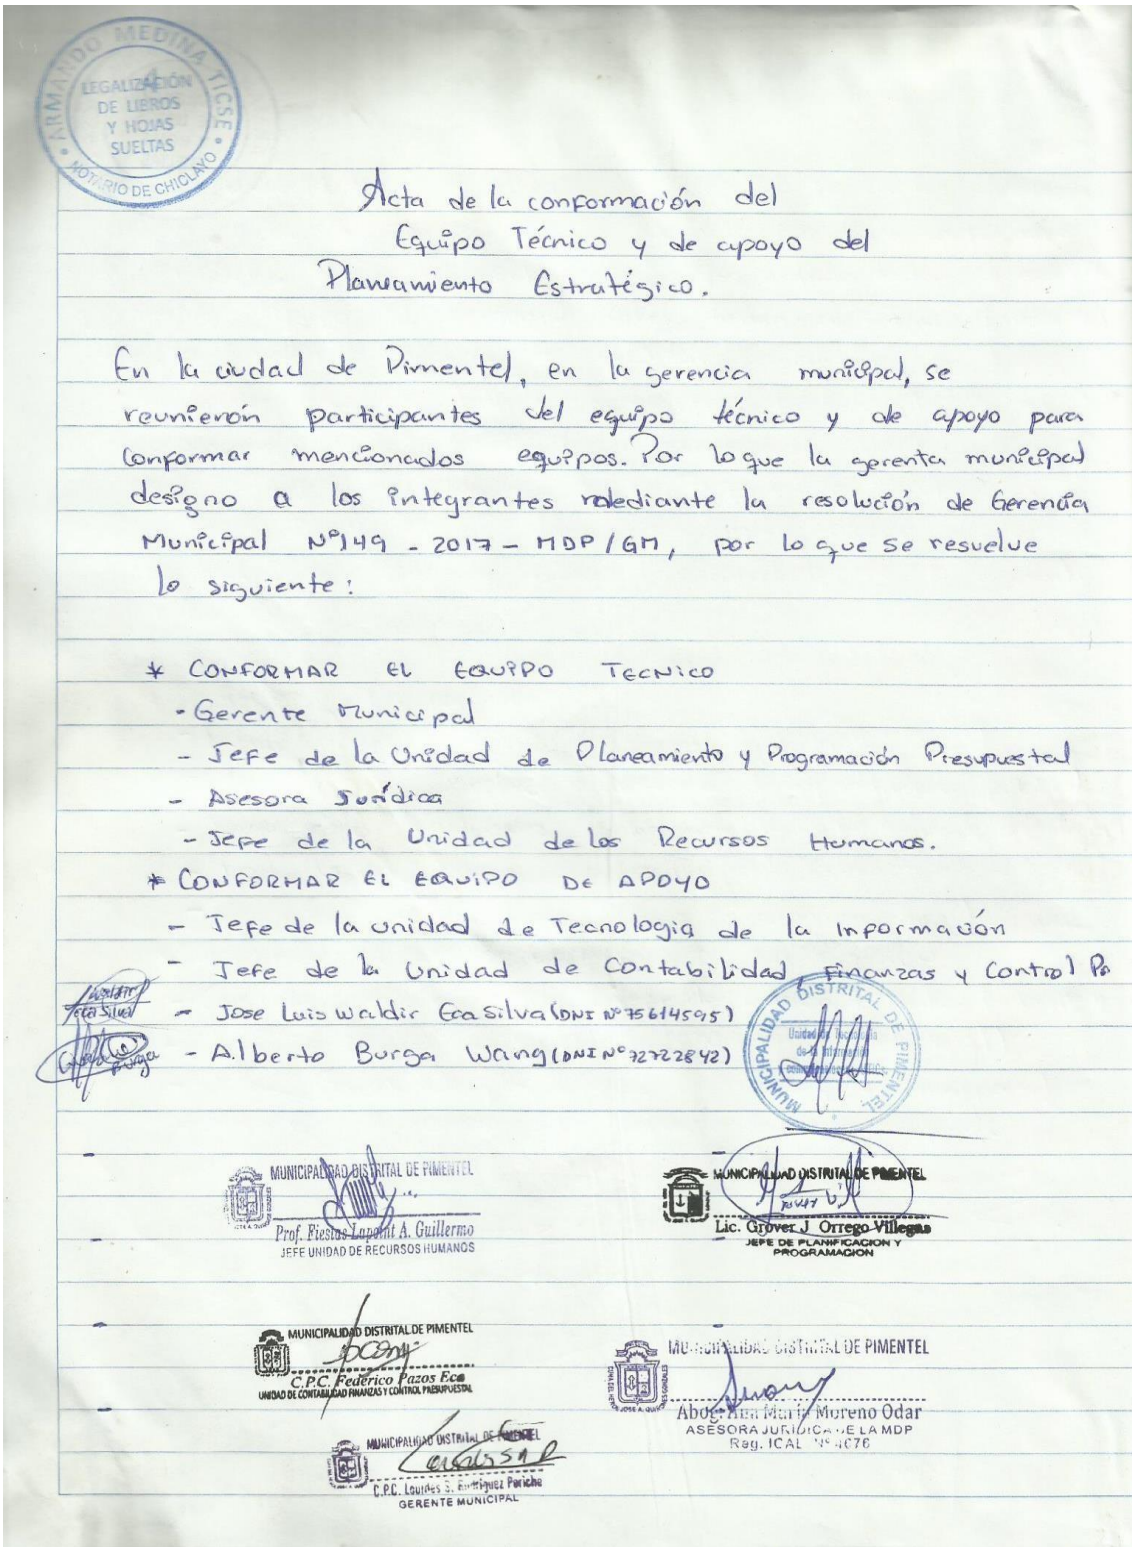 ARMANDO MEDINA TICSE
LEGALIZACIÓN
DE LIBROS
Y HOJAS
SUELTAS
NOTARIO DE CHICLAYO
Acta de la conformación del
Equipo Técnico y de apoyo del
Planeamiento Estratégico.
En la ciudad de Pimentel, en la gerencia municipal, se
reunierón participantes del equipo técnico y de apoyo para
conformar mencionados equipos. Por lo que la gerenta municipal
designo a los integrantes mediante la resolución de Gerencia
Municipal Nº149 - 2017 - MDP/GM, por lo que se resuelve
lo siguiente:
* CONFORMAR EL EQUIPO TECNICO
- Gerente Municipal
- Jefe de la Unidad de Planeamiento y Programación Presupuestal
- Asesora Jurídica
- Jefe de la Unidad de los Recursos Humanos.
* CONFORMAR EL EQUIPO DE APOYO
- Jefe de la unidad de Tecnologia de la Información
- Jefe de la Unidad de Contabilidad, Finanzas y Control
- Jose Luis Waldir Eca Silva (DNI Nº 75614595)
- Alberto Burga Wang (DNI Nº 72722842)
Waldir
Eca Silva
Burga
MUNICIPALIDAD DISTRITAL DE PIMENTEL
Unidad de Tecnología
de la Información
MUNICIPALIDAD DISTRITAL DE PIMENTEL
Prof. Fiestas Lapoint A. Guillermo
JEFE UNIDAD DE RECURSOS HUMANOS
MUNICIPALIDAD DISTRITAL DE PIMENTEL
Lic. Grover J. Orrego Villegas
JEFE DE PLANIFICACION Y
PROGRAMACION
MUNICIPALIDAD DISTRITAL DE PIMENTEL
C.P.C. Federico Pazos Eca
UNIDAD DE CONTABILIDAD FINANZAS Y CONTROL PRESUPUESTAL
MUNICIPALIDAD DISTRITAL DE PIMENTEL
Abog. Ana María Moreno Odar
ASESORA JURIDICA DE LA MDP
Reg. ICAL Nº 4076
MUNICIPALIDAD DISTRITAL DE PIMENTEL
C.P.C. Lourdes S. Rodriguez Periche
GERENTE MUNICIPAL